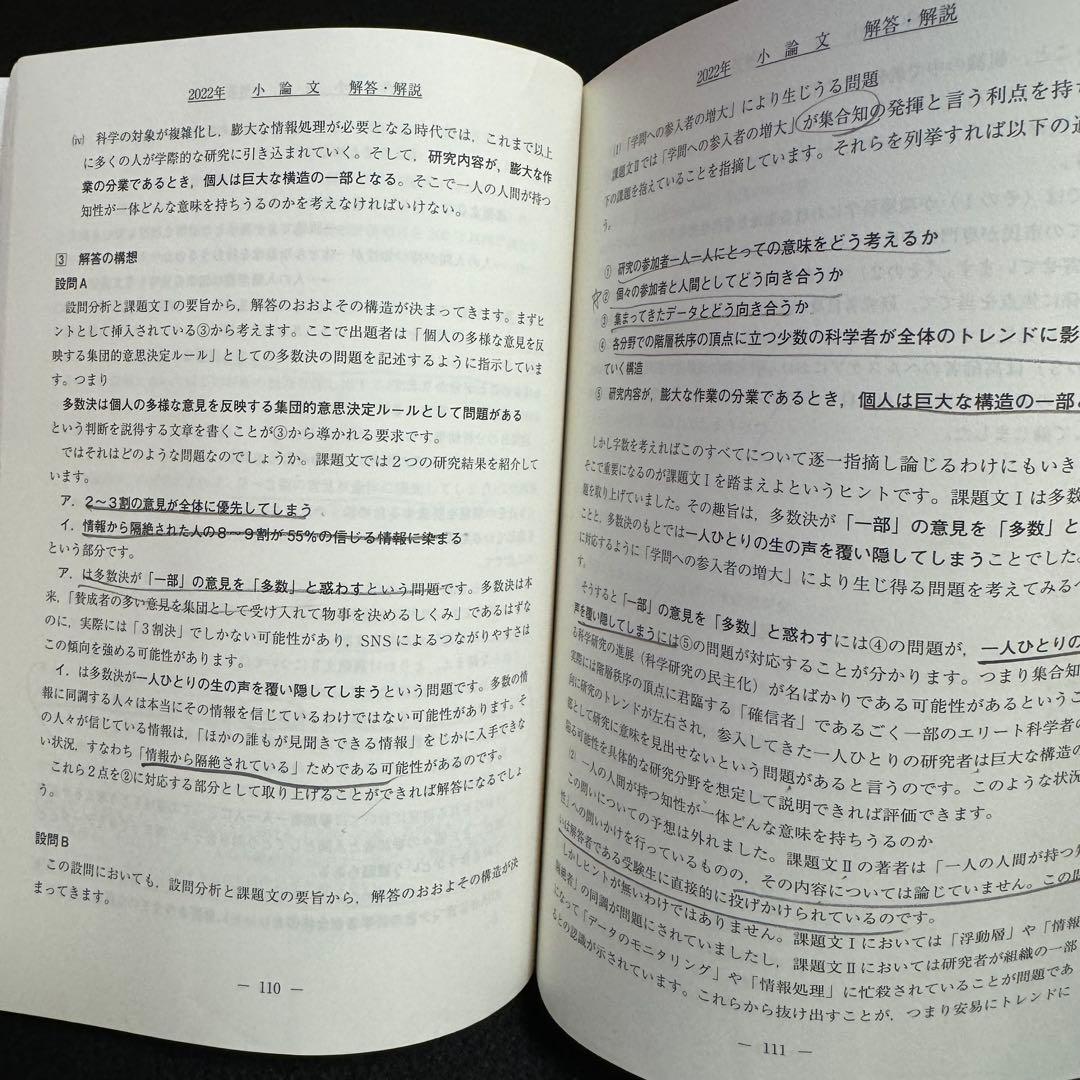 2022年 小論文 解答・解説
(ⅳ) 科学の対象が複雑化し，膨大な情報処理が必要となる時代では，これまで以上
に多くの人が学際的な研究に引き込まれていく。そして，研究内容が，膨大な作
業の分業であるとき，個人は巨大な構造の一部となる。そこで一人の人間が持つ
知性が一体どんな意味を持ちうるのかを考えなければいけない。
3 解答の構想
設問A
設問分析と課題文Ⅰの要旨から，解答のおおよその構造が決まってきます。まずヒ
ントとして挿入されている③から考えます。ここで出題者は「個人の多様な意見を反
映する集団的意思決定ルール」としての多数決の問題を記述するように指示していま
す。つまり
多数決は個人の多様な意見を反映する集団的意思決定ルールとして問題がある
という判断を説得する文章を書くことが③から導かれる要求です。
ではそれはどのような問題なのでしょうか。課題文では２つの研究結果を紹介して
います。
ア．２～３割の意見が全体に優先してしまう
イ．情報から隔絶された人の８～９割が55％の信じる情報に染まる
という部分です。
ア．は多数決が「一部」の意見を「多数」と惑わすという問題です。多数決は本
来，「賛成者の多い意見を集団として受け入れて物事を決めるしくみ」であるはずな
のに，実際には「３割決」でしかない可能性があり，SNSによるつながりやすさは
この傾向を強める可能性があります。
イ．は多数決が一人ひとりの生の声を覆い隠してしまうという問題です。多数の情
報に同調する人々は本当にその情報を信じているわけではない可能性があります。そ
の人々が信じている情報は，「ほかの誰もが見聞きできる情報」をじかに入手できな
い状況，すなわち「情報から隔絶されている」ためである可能性があるのです。
これら２点を②に対応する部分として取り上げることができれば解答になるでしょ
う。
設問B
この設問においても，設問分析と課題文の要旨から，解答のおおよその構造が決
まってきます。
― 110 ―
2022年 小論文 解答・解説
(1)「学問への参入者の増大」により生じうる問題
課題文Ⅱでは「学問への参入者の増大」が集合知の発揮と言う利点を持
下の課題を抱えていることを指摘しています。それらを列挙すれば以下の通
う。
① 研究の参加者一人一人にとっての意味をどう考えるか
② 個々の参加者と人間としてどう向き合うか
③ 集まってきたデータとどう向き合うか
④ 各分野での階層秩序の頂点に立つ少数の科学者が全体のトレンドに影
ていく構造
⑤ 研究内容が，膨大な作業の分業であるとき，個人は巨大な構造の一部
しかし字数を考えればこのすべてについて逐一指摘し論じるわけにもいき
そこで重要になるのが課題文Ⅰを踏まえよというヒントです。課題文Ⅰは多数
題を取り上げていました。その趣旨は，多数決が「一部」の意見を「多数」と
ことと，多数決のもとでは一人ひとりの生の声を覆い隠してしまうことでした。
に対応するように「学問への参入者の増大」により生じ得る問題を考えてみる
す。
そうすると「一部」の意見を「多数」と惑わすには④の問題が，一人ひとりの
声を覆い隠してしまうには⑤の問題が対応することが分かります。つまり集合知
る科学研究の進展（科学研究の民主化）が名ばかりである可能性があるというこ
実際には階層秩序の頂点に君臨する「確信者」であるごく一部のエリート科学者の
向に研究のトレンドが左右され，参入してきた一人ひとりの研究者は巨大な構造の
部として研究に意味を見出せないという問題があると言うのです。このような状況
陥る可能性を具体的な研究分野を想定して説明できれば評価できます。
(2) 一人の人間が持つ知性が一体どんな意味を持ちうるのか
この問いについての予想は外れました。課題文Ⅱの著者は「一人の人間が持つ知
性」への問いかけを行っているものの，その内容については論じていません。この問
いは解答者である受験生に直接的に投げかけられているのです。
しかしヒントが無いわけではありません。課題文Ⅰにおいては「浮動層」や「情報
隔絶者」の同調が問題にされていましたし，課題文Ⅱにおいては研究者が組織の一部
になって「データのモニタリング」や「情報処理」に忙殺されていることが問題であ
るとの認識が示されています。これらから抜け出すことが，つまり安易にトレンドに
― 111 ―